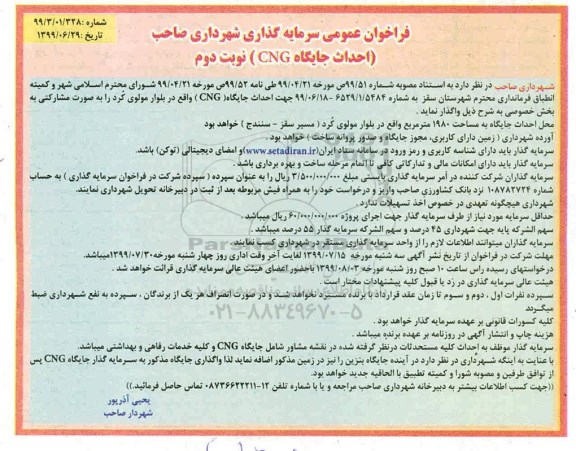 شماره: ۹۹/۳/۰۱/۳۲۸
تاریخ: ۱۳۹۹/۰۶/۲۹
فراخوان عمومی سرمایه گذاری شهرداری صاحب
(احداث جایگاه CNG ) نوبت دوم
شهرداری صاحب در نظر دارد به استناد مصوبه شماره ۹۹/۵۱ص مورخه ۹۹/۰۴/۲۱ طی نامه ۹۹/۵۲ص مورخه ۹۹/۰۴/۲۱ شورای محترم اسلامی شهر و کمیته
انطباق فرمانداری محترم شهرستان سقز به شماره ۶۵۲۹/۱/۵۴۸۴ -۹۹/۰۶/۱۸ جهت احداث جایگاه( CNG ) واقع در بلوار مولوی کُرد را به صورت مشارکتی به
بخش خصوصی به شرح ذیل واگذار نماید .
محل احداث جایگاه به مساحت ۱۹۸۰ مترمربع واقع در بلوار مولوی کُرد ( مسیر سقز - سنندج ) خواهد بود
آورده شهرداری ( زمین دارای کاربری، مجوز جایگاه و صدور پروانه ساخت ) خواهد بود .
سرمایه گذار باید دارای شناسه کاربری و رمز ورود در سامانه ستاد ایران(www.setadiran.ir)و امضای دیجیتالی (توکن) باشد.
سرمایه گذار باید دارای امکانات مالی و تدارکاتی کافی تا اتمام مرحله ساخت و بهره برداری باشد .
سرمایه گذاران شرکت کننده در امر سرمایه گذاری بایستی مبلغ ۳/۵۰۰/۰۰۰/۰۰۰ ریال را به عنوان سپرده ( سپرده شرکت در فراخوان سرمایه گذاری ) به حساب
شماره ۱۰۸۷۸۲۷۲۴ نزد بانک کشاورزی صاحب واریز و درخواست خود را به همراه فیش مربوطه بعد از ثبت در دبیرخانه تحویل شهرداری نمایند.
شهرداری هیچگونه تعهدی در خصوص اخذ تسهیلات ندارد .
حداقل سرمایه مورد نیاز از طرف سرمایه گذار جهت اجرای پروژه ۶۰/۰۰۰/۰۰۰/۰۰۰ ریال میباشد .
سهم الشرکه پایه جهت شهرداری ۴۵ درصد و سهم الشرکه سرمایه گذار ۵۵ درصد میباشد.
سرمایه گذاران میتوانند اطلاعات لازم را از واحد سرمایه گذاری مستقر در شهرداری کسب نمایند.
مهلت شرکت در فراخوان از تاریخ نشر آگهی سه شنبه مورخه ۱۳۹۹/۰۷/۱۵ لغایت آخر وقت اداری روز چهار شنبه مورخه۱۳۹۹/۰۷/۳۰میباشد.
درخواستهای رسیده راس ساعت ۱۰ صبح روز شنبه مورخه ۱۳۹۹/۰۸/۰۳ باحضور اعضای هیئت عالی سرمایه گذاری قرائت خواهد شد .
هیئت عالی سرمایه گذاری در رد یا قبول کلیه پیشنهادات مختار است
سپرده نفرات اول ، دوم و سوم تا زمان عقد قرارداد با برنده مسترد نخواهد شد و در صورت انصراف هر یک از برندگان ، سپرده به نفع شهرداری ضبط
میگردد
کلیه کسورات قانونی بر عهده سرمایه گذار خواهد بود.
هزینه چاپ و انتشار آگهی در روزنامه بر عهده برنده میباشد .
سرمایه گذار موظف به احداث کلیه مستحدثات درنظر گرفته شده در نقشه مشاور شامل جایگاه CNG و کلیه خدمات رفاهی و بهداشتی میباشد.
با عنایت به اینکه شهرداری در نظر دارد در آینده جایگاه بنزین را نیز در زمین مذکور اضافه نماید لذا واگذاری جایگاه مذکور به سرمایه گذار جایگاه CNG پس
از توافق طرفین و مصوبه شورا و کمیته تطبیق با الحاقیه جدید خواهد بود.
((جهت کسب اطلاعات بیشتر به دبیرخانه شهرداری صاحب مراجعه و یا با شماره تلفن ۱۲-۰۸۷۳۶۶۴۲۲۱۱ تماس حاصل فرمائید.))
یحیی آذرپور
شهردار صاحب
۰۲۱-۸۸۳۴۹۶۷۰-۵